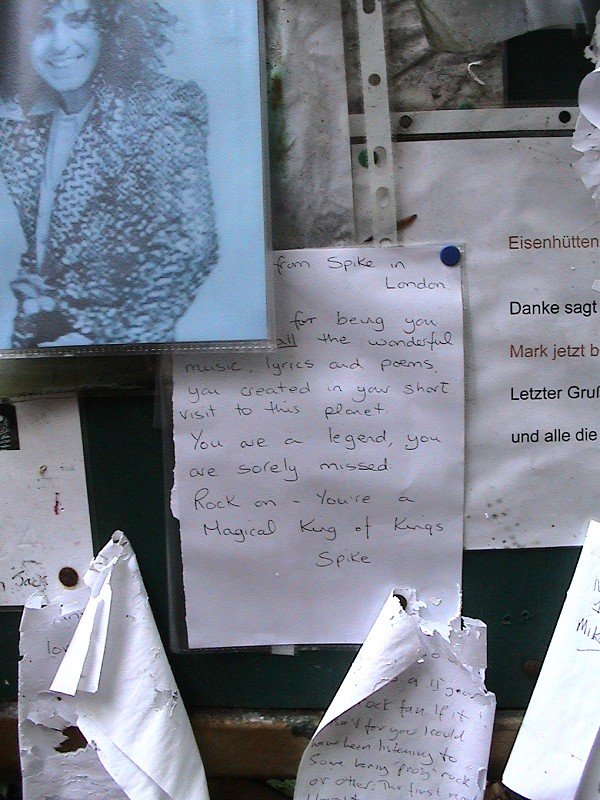 from Spike in
London.
for being you
all the wonderful
music, lyrics and poems,
you created in your short
visit to this planet.
You are a legend, you
are sorely missed.
Rock on - You're a
Magical King of Kings
Spike
Eisenhütten
Danke sagt
Mark jetzt b
Letzter Gruß
und alle die
Jack
Mike
a 15 year
rock fan. If it
for you I could
have been listening to
Some boring 'prog' rock
or other. The first